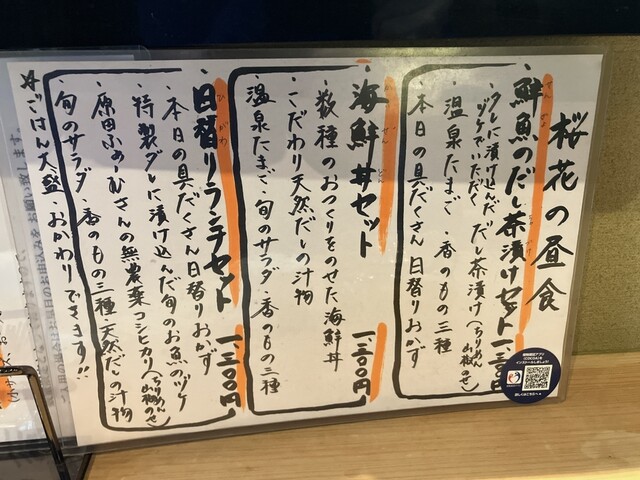 桜花の昼食
・鮮魚のだし茶漬けセット 一、三〇〇円
タレに漬け込んだ
ヅケでいただく だし茶漬け(ちりめん山椒のせ)
温泉たまご・香のもの三種
本日の具だくさん日替りおかず
・海鮮丼セット 一、三〇〇円
かい せん どん
・数種のおつくりをのせた海鮮丼
・こだわり天然だしの汁物
・温泉たまご・旬のサラダ・香のもの三種
・日替りランチセット 一、三〇〇円
ひ がわ
・本日の具だくさん日替りおかず
・特製ダレに漬け込んだ旬のお魚のヅケ
・原田ふぁーむさんの無農薬コシヒカリ(ちりめん山椒のせ)
旬のサラダ・香のもの三種・天然だしの汁物
※ごはん大盛・おかわりできます!!
接触確認アプリ
(COCOA)を
インストールしましょう!
詳しくはこちらへ